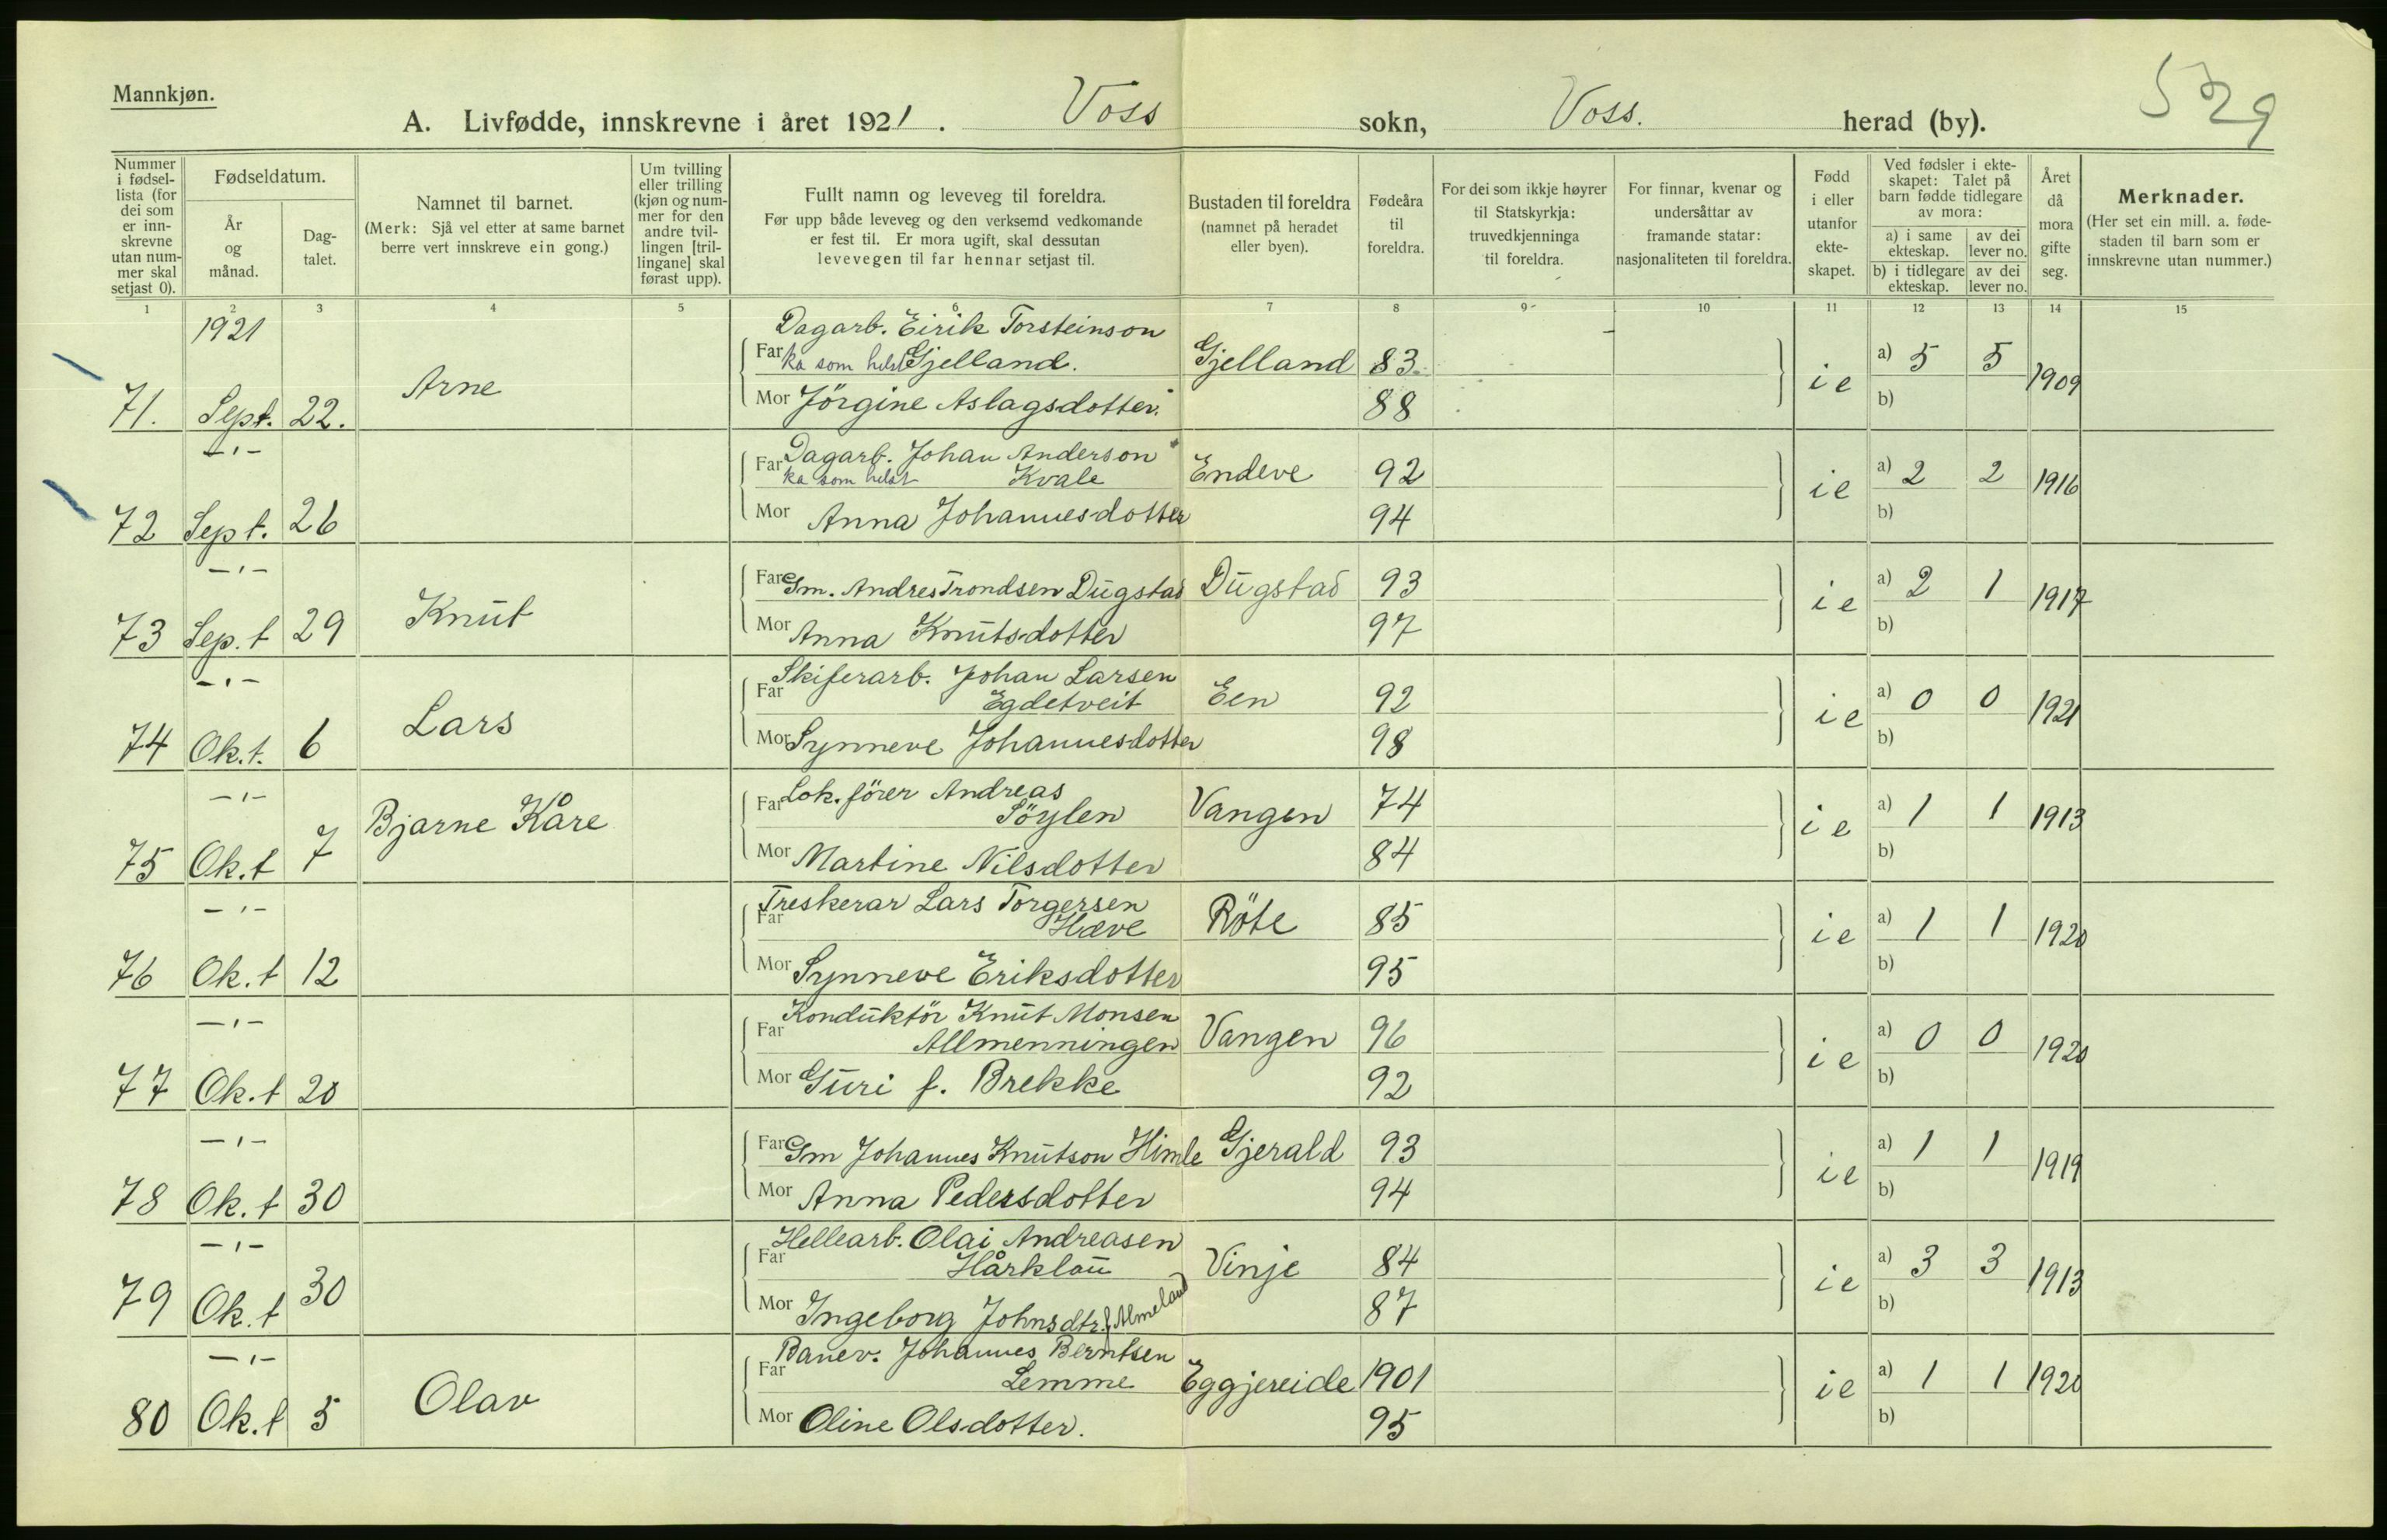 Mannkjøn.
529
A. Livfødde, innskrevne i året 1921. Voss sokn, Voss. herad (by).
Nummer i fødsel-lista (for dei som er inn-skrevne utan num-mer skal setjast 0).
Fødseldatum.
År og månad.
Dag-talet.
Namnet til barnet.
(Merk: Sjå vel etter at same barnet berre vert innskreve ein gong.)
Um tvilling eller trilling (kjøn og num-mer for den andre tvil-lingen [tril-lingane] skal førast upp).
Fullt namn og leveveg til foreldra.
Før upp både leveveg og den verksemd vedkomande er fest til. Er mora ugift, skal dessutan levevegen til far hennar setjast til.
Bustaden til foreldra (namnet på heradet eller byen).
Fødeåra til foreldra.
For dei som ikkje høyrer til Statskyrkja: truvedkjenninga til foreldra.
For finnar, kvenar og undersåttar av framande statar: nasjonaliteten til foreldra.
Fødd i eller utanfor ekte-skapet.
Ved fødsler i ekte-skapet: Talet på barn fødde tidlegare av mora:
a) i same ekteskap. av dei lever no.
b) i tidlegare ekteskap. av dei lever no.
Året då mora gifte seg.
Merknader.
(Her set ein mill. a. føde-staden til barn som er innskrevne utan nummer.)
1 2 3 4 5 6 7 8 9 10 11 12 13 14 15
1921
Dagarb. Eirik Torsteinson
Far ka som helst Gjelland. Gjelland 83 a) 5 5
71. Sept. 22. Arne Mor Jörgine Aslagsdotter. 88 ie b) 1909
-"-
Far Dagarb. Johan Anderson
ka som helst Kvale Endeve 92 a) 2 2
72 Sept. 26 Mor Anna Johannesdotter 94 ie b) 1916
-"-
Far Gm. Andres Trondsen Dugstad Dugstad 93 a) 2 1
73 Sep.t 29 Knut Mor Anna Knutsdotter 97 ie b) 1917
-"-
Far Skiferarb. Johan Larsen
Egdetveit Een 92 a) 0 0
74 Ok.t. 6 Lars Mor Synneve Johannesdotter 98 ie b) 1921
-"-
Far Lok.förer Andreas
Söylen Vangen 74 a) 1 1
75 Ok.t 7 Bjarne Kåre Mor Martine Nilsdotter 84 ie b) 1913
-"-
Far Treskerar Lars Torgersen
Hæve Röte 85 a) 1 1
76 Ok.t 12 Mor Synneve Eriksdotter 95 ie b) 1920
-"-
Far Konduktör Knut Monsen
Allmenningen Vangen 96 a) 0 0
77 Ok.t 20 Mor Guri f. Brekke 92 ie b) 1920
-"-
Far Gm Johannes Knutson Himle Gjerald 93 a) 1 1
78 Ok.t 30 Mor Anna Pedersdotter 94 ie b) 1919
-"-
Far Hellearb. Olai Andreasen
Hårklau Vinje 84 a) 3 3
79 Ok.t 30 Mor Ingeborg Johnsdtr. f. Almeland 87 ie b) 1913
-"-
Far Banev. Johannes Berntsen
Lemme Eggjereide 1901 a) 1 1
80 Ok.t 5 Olav Mor Oline Olsdotter. 95 ie b) 1920